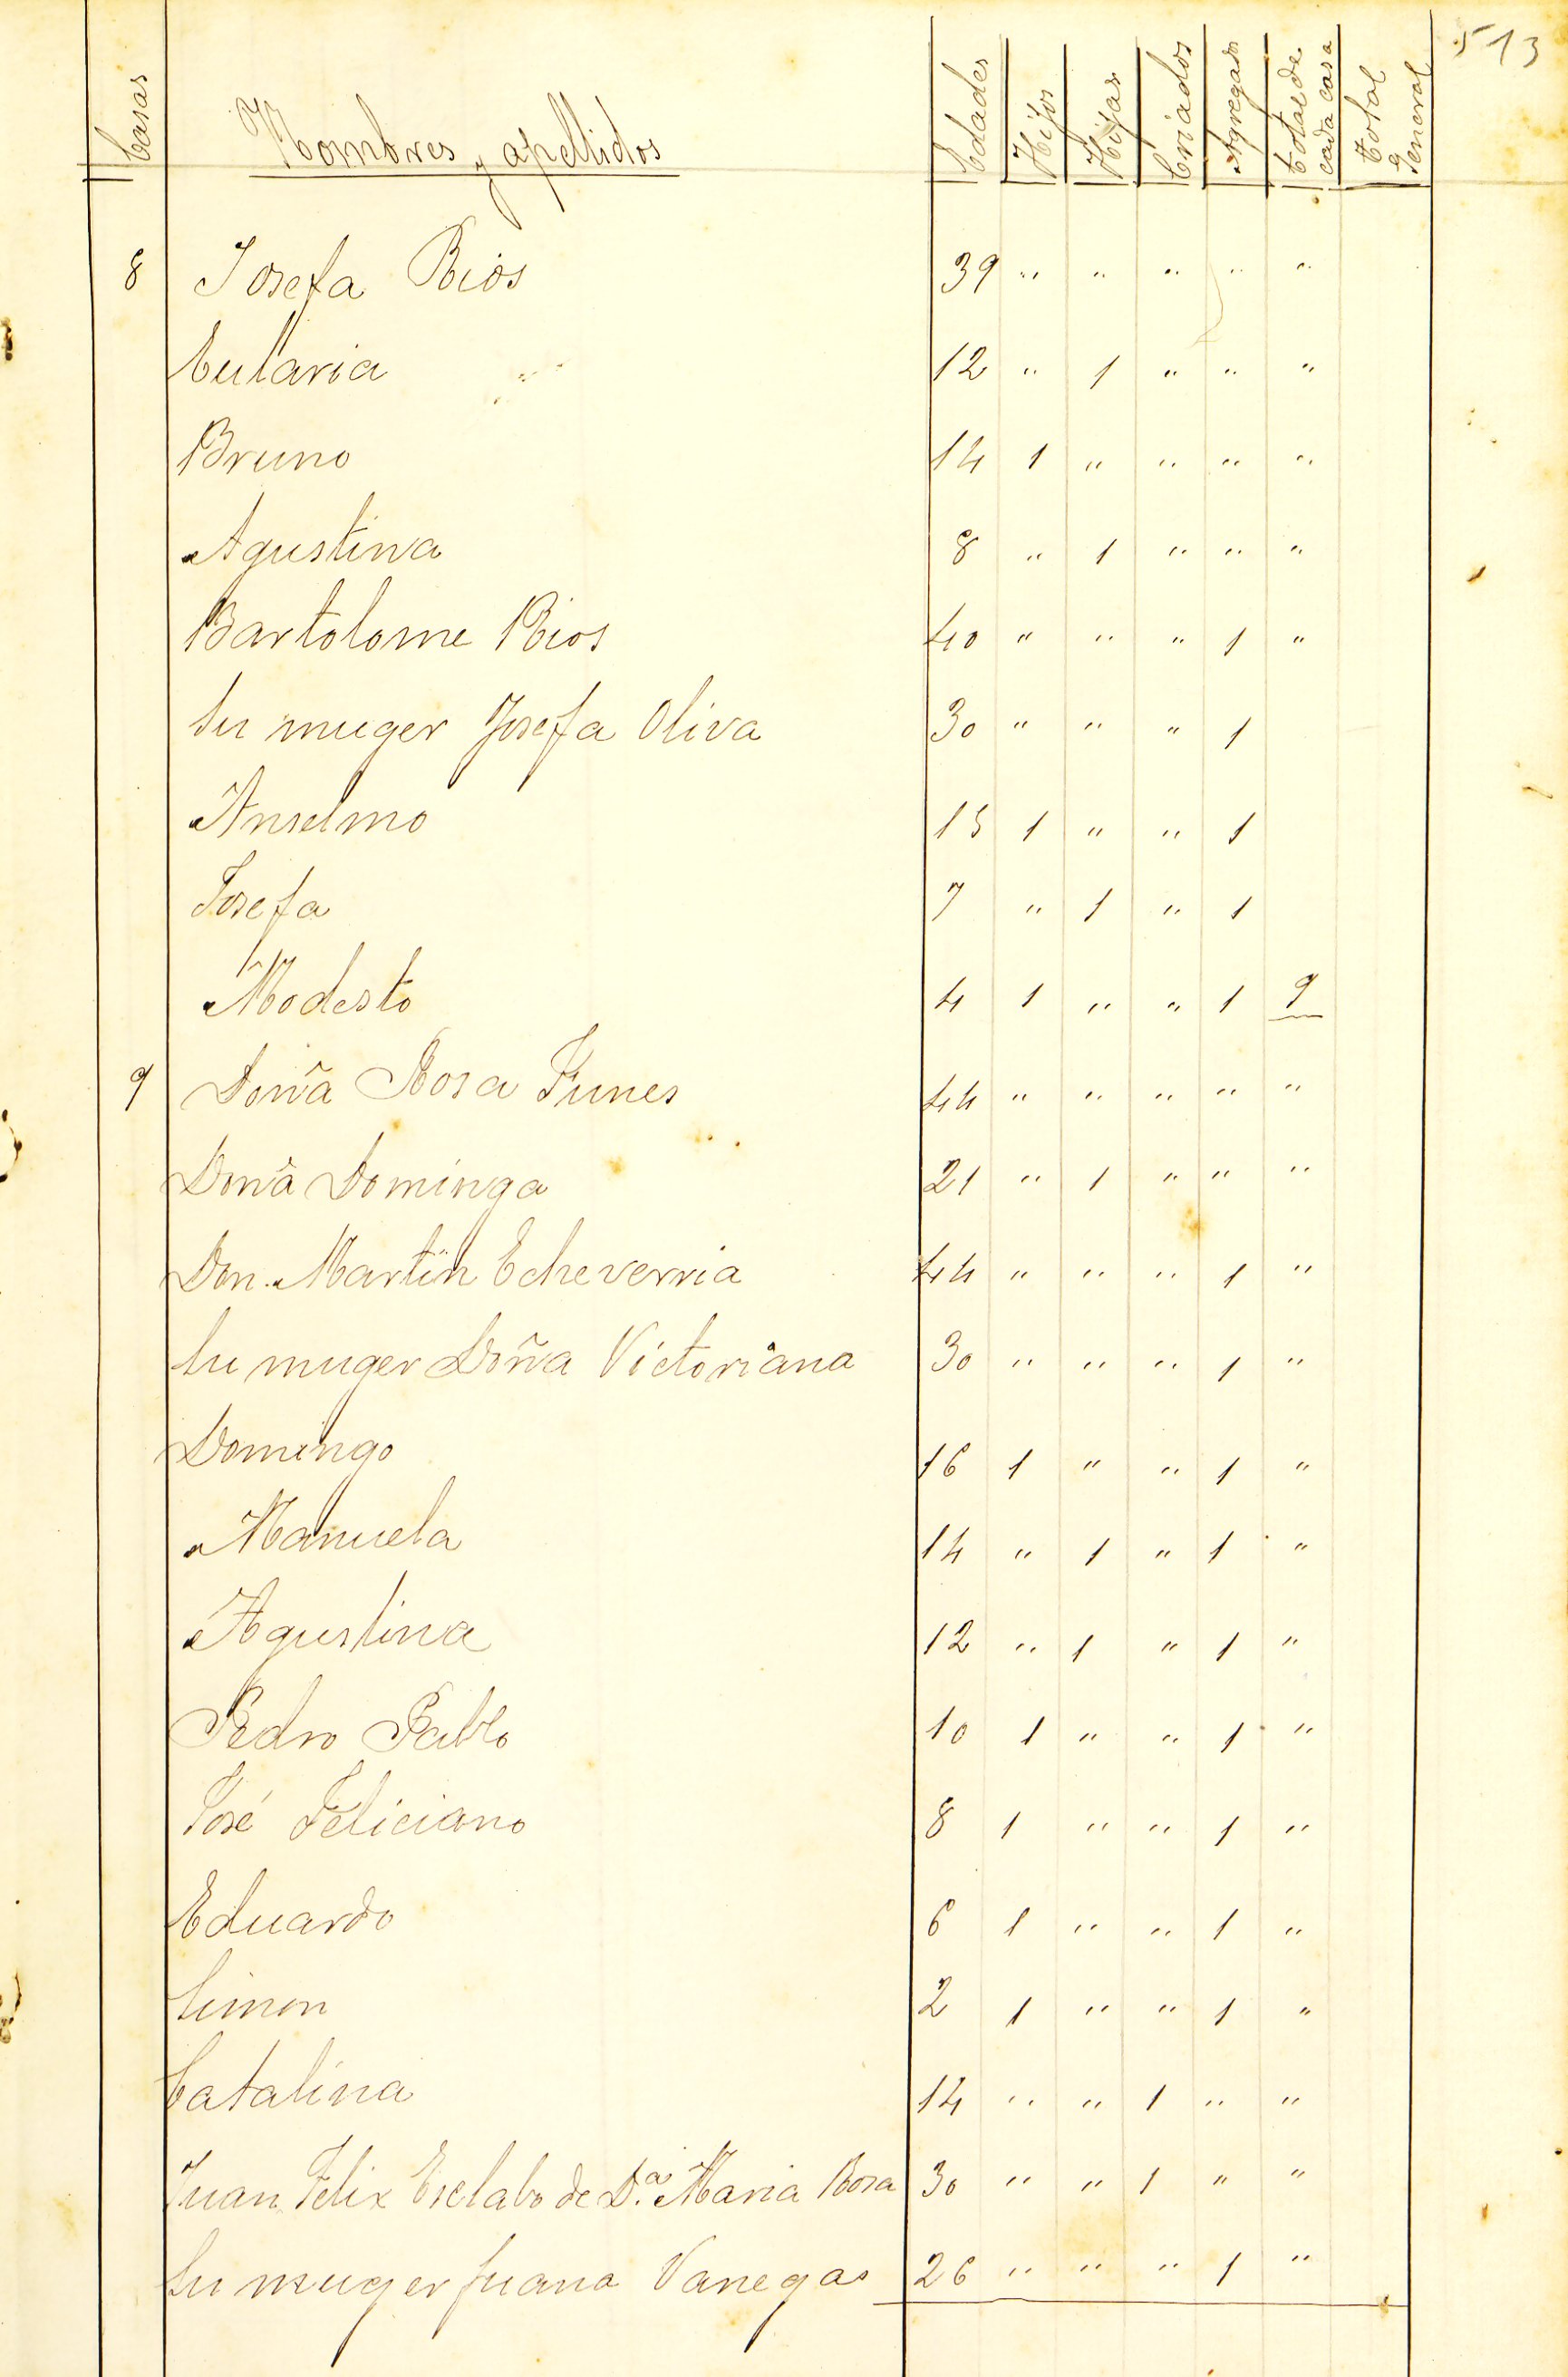 513
Casas Nombres y apellidos Edades Hijos Hijas Criados Agregados Total de cada casa Total General
8 Josefa Rios 39 " " " " "
Eularia 12 " 1 " " "
Bruno 14 1 " " " "
Agustina 8 " 1 " " "
Bartolome Rios 40 " " " 1 "
Su muger Josefa Oliva 30 " " " 1
Anselmo 15 1 " " 1
Josefa 7 " 1 " 1
Modesto 4 1 " " 1 9
9 Doña Rosa Funes 44 " " " " "
Doña Dominga 21 " 1 " " "
Don Martin Echeverria 44 " " " 1 "
Su muger Doña Victoriana 30 " " " 1 "
Domingo 16 1 " " 1 "
Manuela 14 " 1 " 1 "
Agustina 12 " 1 " 1 "
Pedro Pablo 10 1 " " 1 "
José Feliciano 8 1 " " 1 "
Eduardo 6 1 " " 1 "
Simon 2 1 " " 1 "
Catalina 14 " " 1 " "
Juan Felix Esclabo de D.ª Maria Rosa 30 " " 1 " "
Su muger Juana Vanegas 26 " " " 1 "